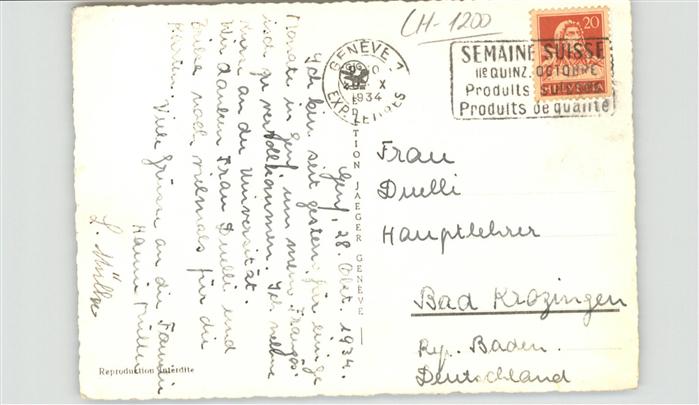 CH-1200
GENÈVE 1
1934
EXP. LETTRES
SEMAINE SUISSE
IIE QUINZ. OCTOBRE
Produits suisses
Produits de qualité
20
HELVETIA
Genf, 28. Okt. 1934.
Ich bin seit gestern für einige
Monate in Genf um mein Französ
isch zu vervollkommnen. Ich nehme
Kurse an der Universität.
Wir danken Frau Duelli und
noch vielmals für die
Viele Grüsse an die Familie
Hanni Müller
L. Müller
EDITION JAEGER GENÈVE
Frau
Duelli
Hauptlehrer
Bad Krozingen
Rep. Baden.
Deutschland
Reproduction interdite